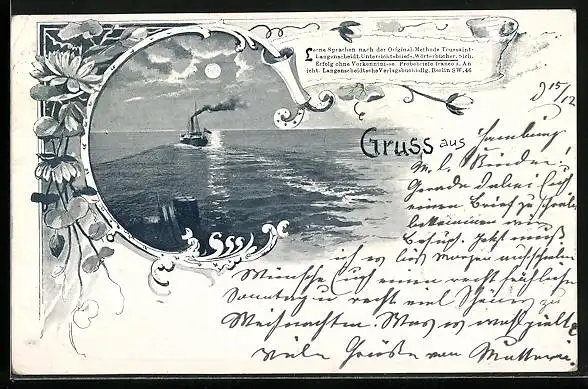 Lerne Sprachen nach der Original-Methode Toussaint-
Langenscheidt. Unterrichtsbriefe, Wörterbücher. Sich.
Erfolg ohne Vorkenntnisse. Probebriefe franco d. An
icht. Langenscheidtsche Verlagsbuchhdlg. Berlin SW. 46
15/12
Gruss aus Hamburg
M. l. Kinder!
Gerade dabei Euch
einen Brief zu schreiben
bekommen wir
Besuch. Jetzt muß
ich es bis morgen aufschieben
Wünsche Euch einen recht fröhlichen
Sonntag u recht viel Schönes zu
Weihnachten. Was
Viele Grüße von Mutter